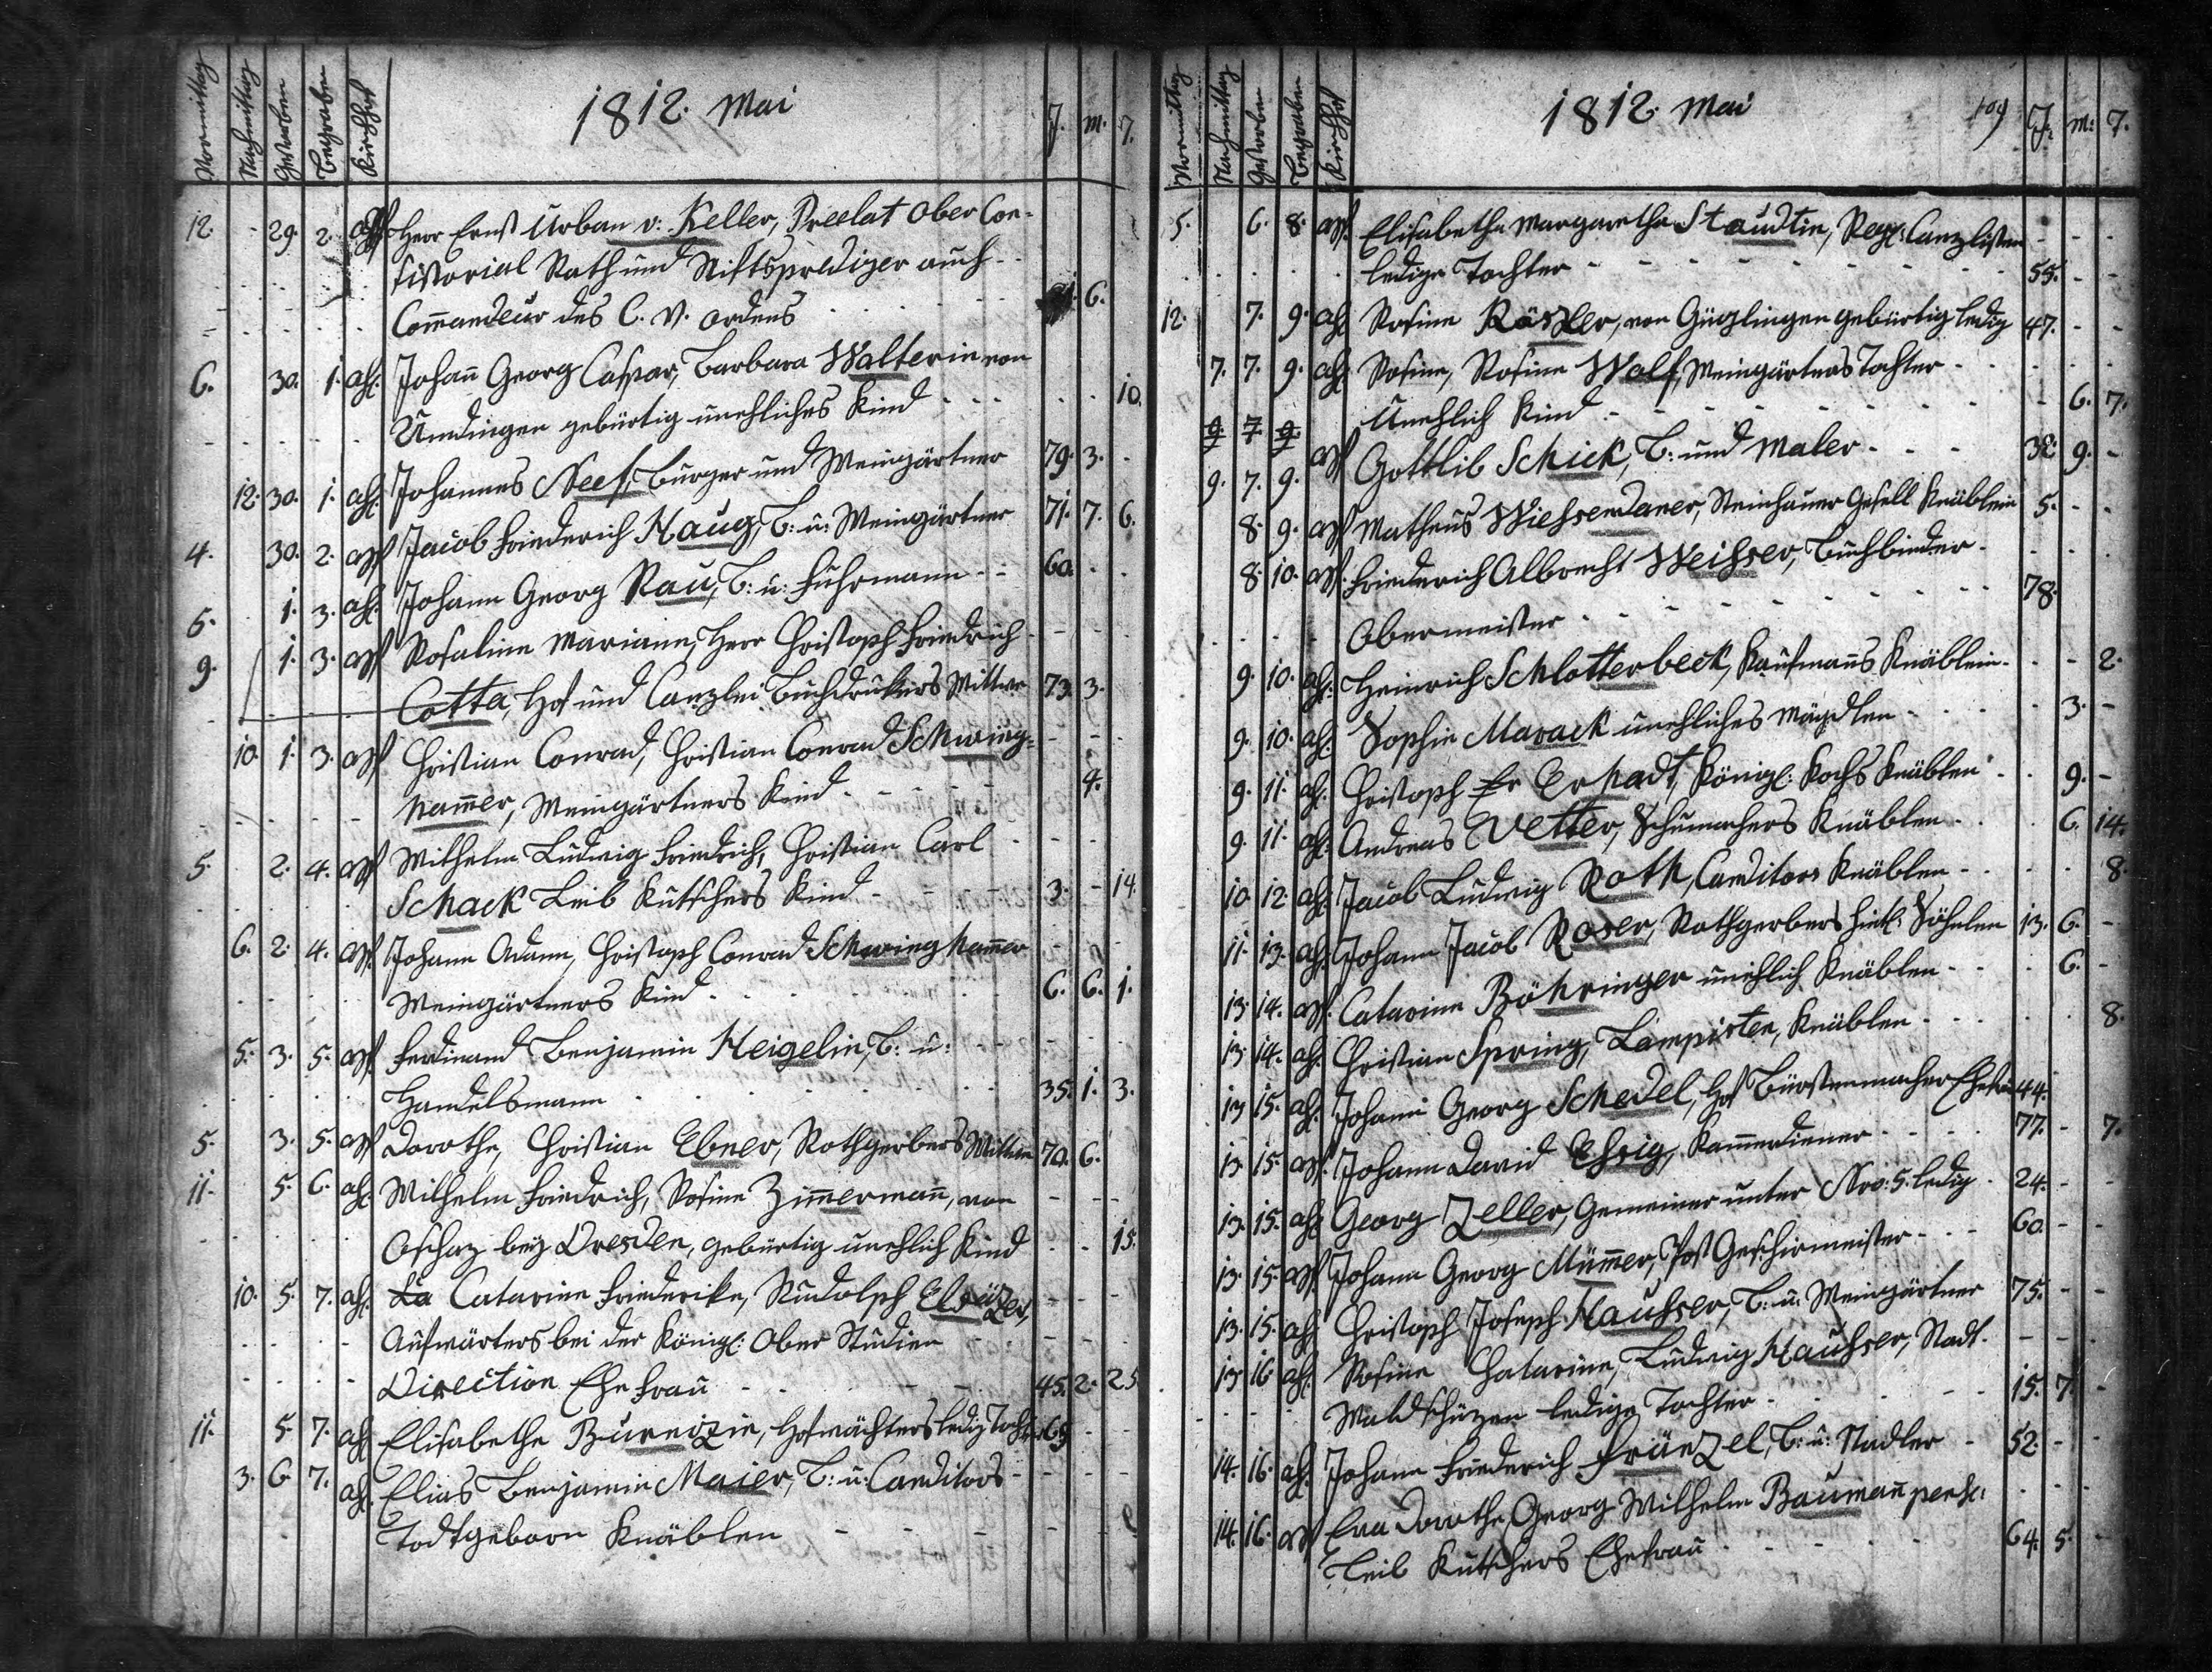 Vormittag Nachmittag Gestorben Begraben Kirchhof 1812. Mai J. M. T.
12. - 29. 2. Herr Ernst Urban v: Keller, Preelat Ober Con-
sistorial Rath und Stiftsprediger auch
Com̄andeur des C. V. Ordens 6.
6. 30. 1. Johan̄ Georg Caspar, Barbara Walterin von
Undingen gebürtig unehliches Kind 10.
12. 30. 1. Johannes Neef, Bürger und Weingärtner 79. 3.
4. 30. 2. Jacob Friederich Haug, B: u: Weingärtner 71. 7. 6.
5. 1. 3. Johann Georg Rau, B: u: Fuhrmann 60.
9. 1. 3. Rosalina Mariane, Herr Christoph Friedrich
Cotta, Hof und Canzlei Buchdrukers Wittwe 73. 3.
10. 1. 3. Christian Conrad, Christian Conrad Schwing-
ham̄er, Weingärtners Kind 4.
5. 2. 4. Wilhelm Ludwig Friedrich, Christian Carl
Schack Leib Kutschers Kind 3. - 14.
6. 2. 4. Johann Adam, Christoph Conrad Schwingham̄er
Weingärtners Kind 6. 6. 1.
5. 3. 5. Ferdinand Benjamin Heigelin, B: u:
Handelsmann 35. 1. 3.
5. 3. 5. Dorothe, Christian Ebner, Rothgerbers Wittwe 70. 6.
11. 5. 6. Wilhelm Friedrich, Rosine Zim̄erman̄, von
Oschaz bey Dresden, gebürtig unehlich Kind 15.
10. 5. 7. La Catarine Friederike, Rudolph
Aufwärters bei der Königl: Ober Studien
Direction Ehefrau 45. 2. 25.
11. 5. 7. Elisabethe hofwächters ledig Tochter 69.
3. 6. 7. Elias Benjamin Maier, B: u: Canditors
Todtgeborn Knäblen
Vormittag Nachmittag Gestorben Begraben Kirchhof 1812. Mai 109 J. M: T.
5. 6. 8. Elisabetha Margaretha Staudtin, Canzlisten
ledige Tochter 55.
12. 7. 9. Rosine Rössler, von Güglingen gebürtig ledig 47.
7. 7. 9. Rosine, Rosine Wolf, Weingärtners Tochter
Unehlich Kind 6. 7.
9. 7. 9.
9. 7. 9. Gottlib Schick, B: und Maler 32. 9. -
8. 9. Matheus Steinhauer Gesell Knäblein 5.
8. 10. Friederich Albrecht Weisser, Buchbinder
Obermeister 78.
9. 10. Heinrich Schlotterbeck, Kaufman̄s Knäblein 2.
9. 10. Sophie Marack unehliches Mägdlen 3. -
9. 11. Christoph Er Erhadt, Königl: Kochs Knäblen 9. -
9. 11. Andreas Vetter, Schumachers Knäblen 6. 14.
10. 12. Jacob Ludwig Roth, Canditors Knäblen 8.
11. 13. Johann Jacob Roser, Rothgerbers hintl: Söhnlen 13. 6. -
13. 14. Catarine Böhringer unehlich Knäblen 6. -
13. 14. Christian Spring, Lampisten, Knäblen 8.
13. 15. Johann Georg Schedel, Hof Bürstenmacher Ehefrau 44.
13. 15. Johann David Essig, Kam̄erdiener 77. - 7.
13. 15. Georg Zeller, Gemeiner unter Nro: 5. ledig 24. -
13. 15. Johann Georg Müm̄er, Post Geschirmeister 60. -
13. 15. Christoph Joseph Hausser, B: u: Weingärtner 75. -
13. 16. Rosine Chatarine, Ludwig Hausser, Stadt
Waldschüzen ledige Tochter 15. 7. -
14. 16. Johann Friederich Fränzel, B: u: Nadler 52. -
14. 16. Eva Dorothe, Georg Wilhelm Bauman̄ pens:
Leib Kutschers Ehefrau 64. 5. -